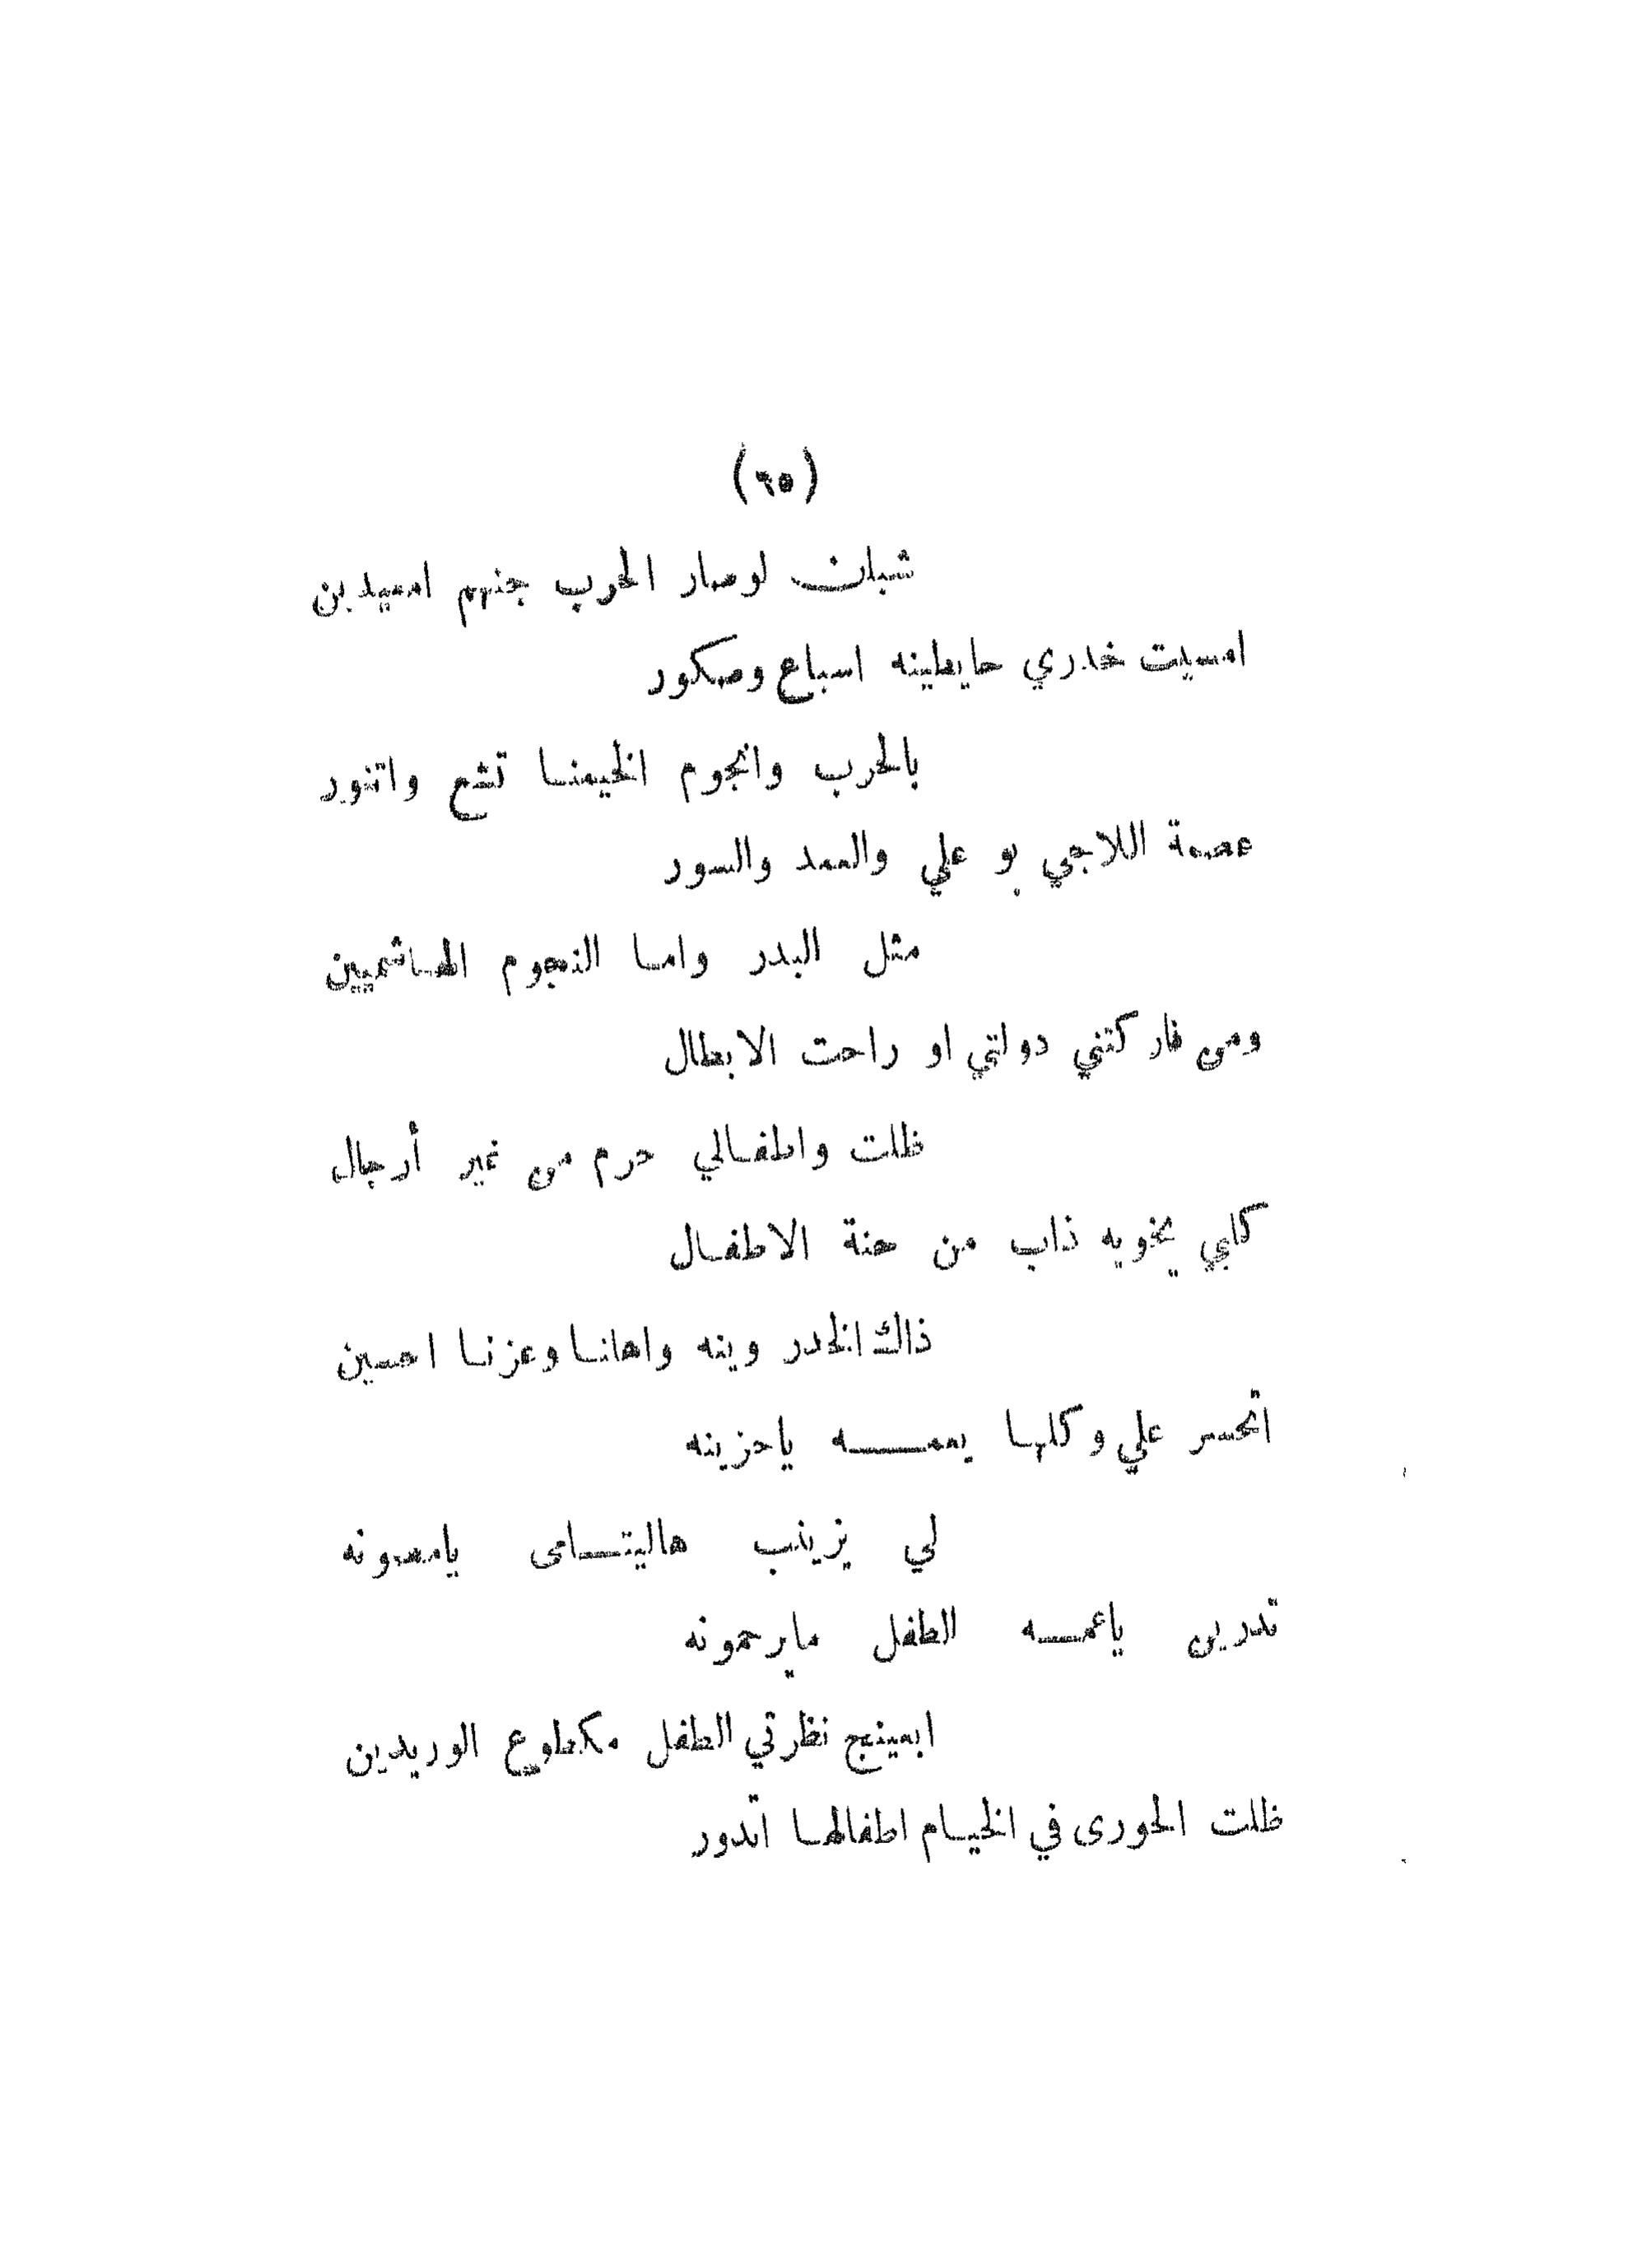 (٦٥)
شبلن لوصار الحرب جنهم امعيدين
امسيت خدري حايطينه اسباع وصكور
بالحرب وانجوم الخيمنا تشع واتنور
عصمة اللاجي بو علي والعمد والسور
مثل البدر واما النجوم الهاشميين
ومن فاركتني دولتي او راحت الابطال
ظلت واطفالي حرم من غير أرجال
كلبي يخويه ذاب من حنة الاطفال
ذاك الخدر وينه واهلنا وعزنا احسين
اتحسر علي وكلها يعمـــه ياحزينه
لي يزينب هاليتـامى يامصونه
تدرين ياعمـه الطفل مايرحمونه
ابعينج نظرتي الطفل مكطوع الوريدين
ظلت الحورى في الخيام اطفالها اتدور